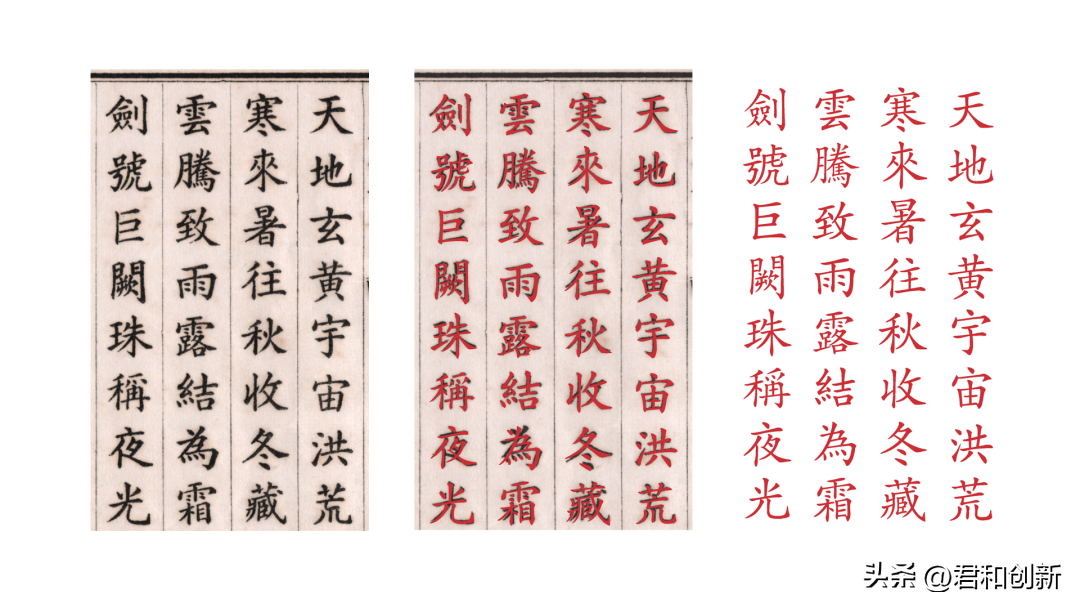 天地玄黄宇宙洪荒
寒來暑往秋收冬藏
雲騰致雨露結為霜
劍號巨闕珠稱夜光
天地玄黄宇宙洪荒
寒來暑往秋收冬藏
雲騰致雨露結為霜
劍號巨闕珠稱夜光
天地玄黄宇宙洪荒
寒來暑往秋收冬藏
雲騰致雨露結為霜
劍號巨闕珠稱夜光
头条 @君和创新